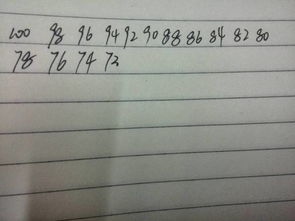 100 98 96 94 92 90 88 86 84 82 80
78 76 74 72